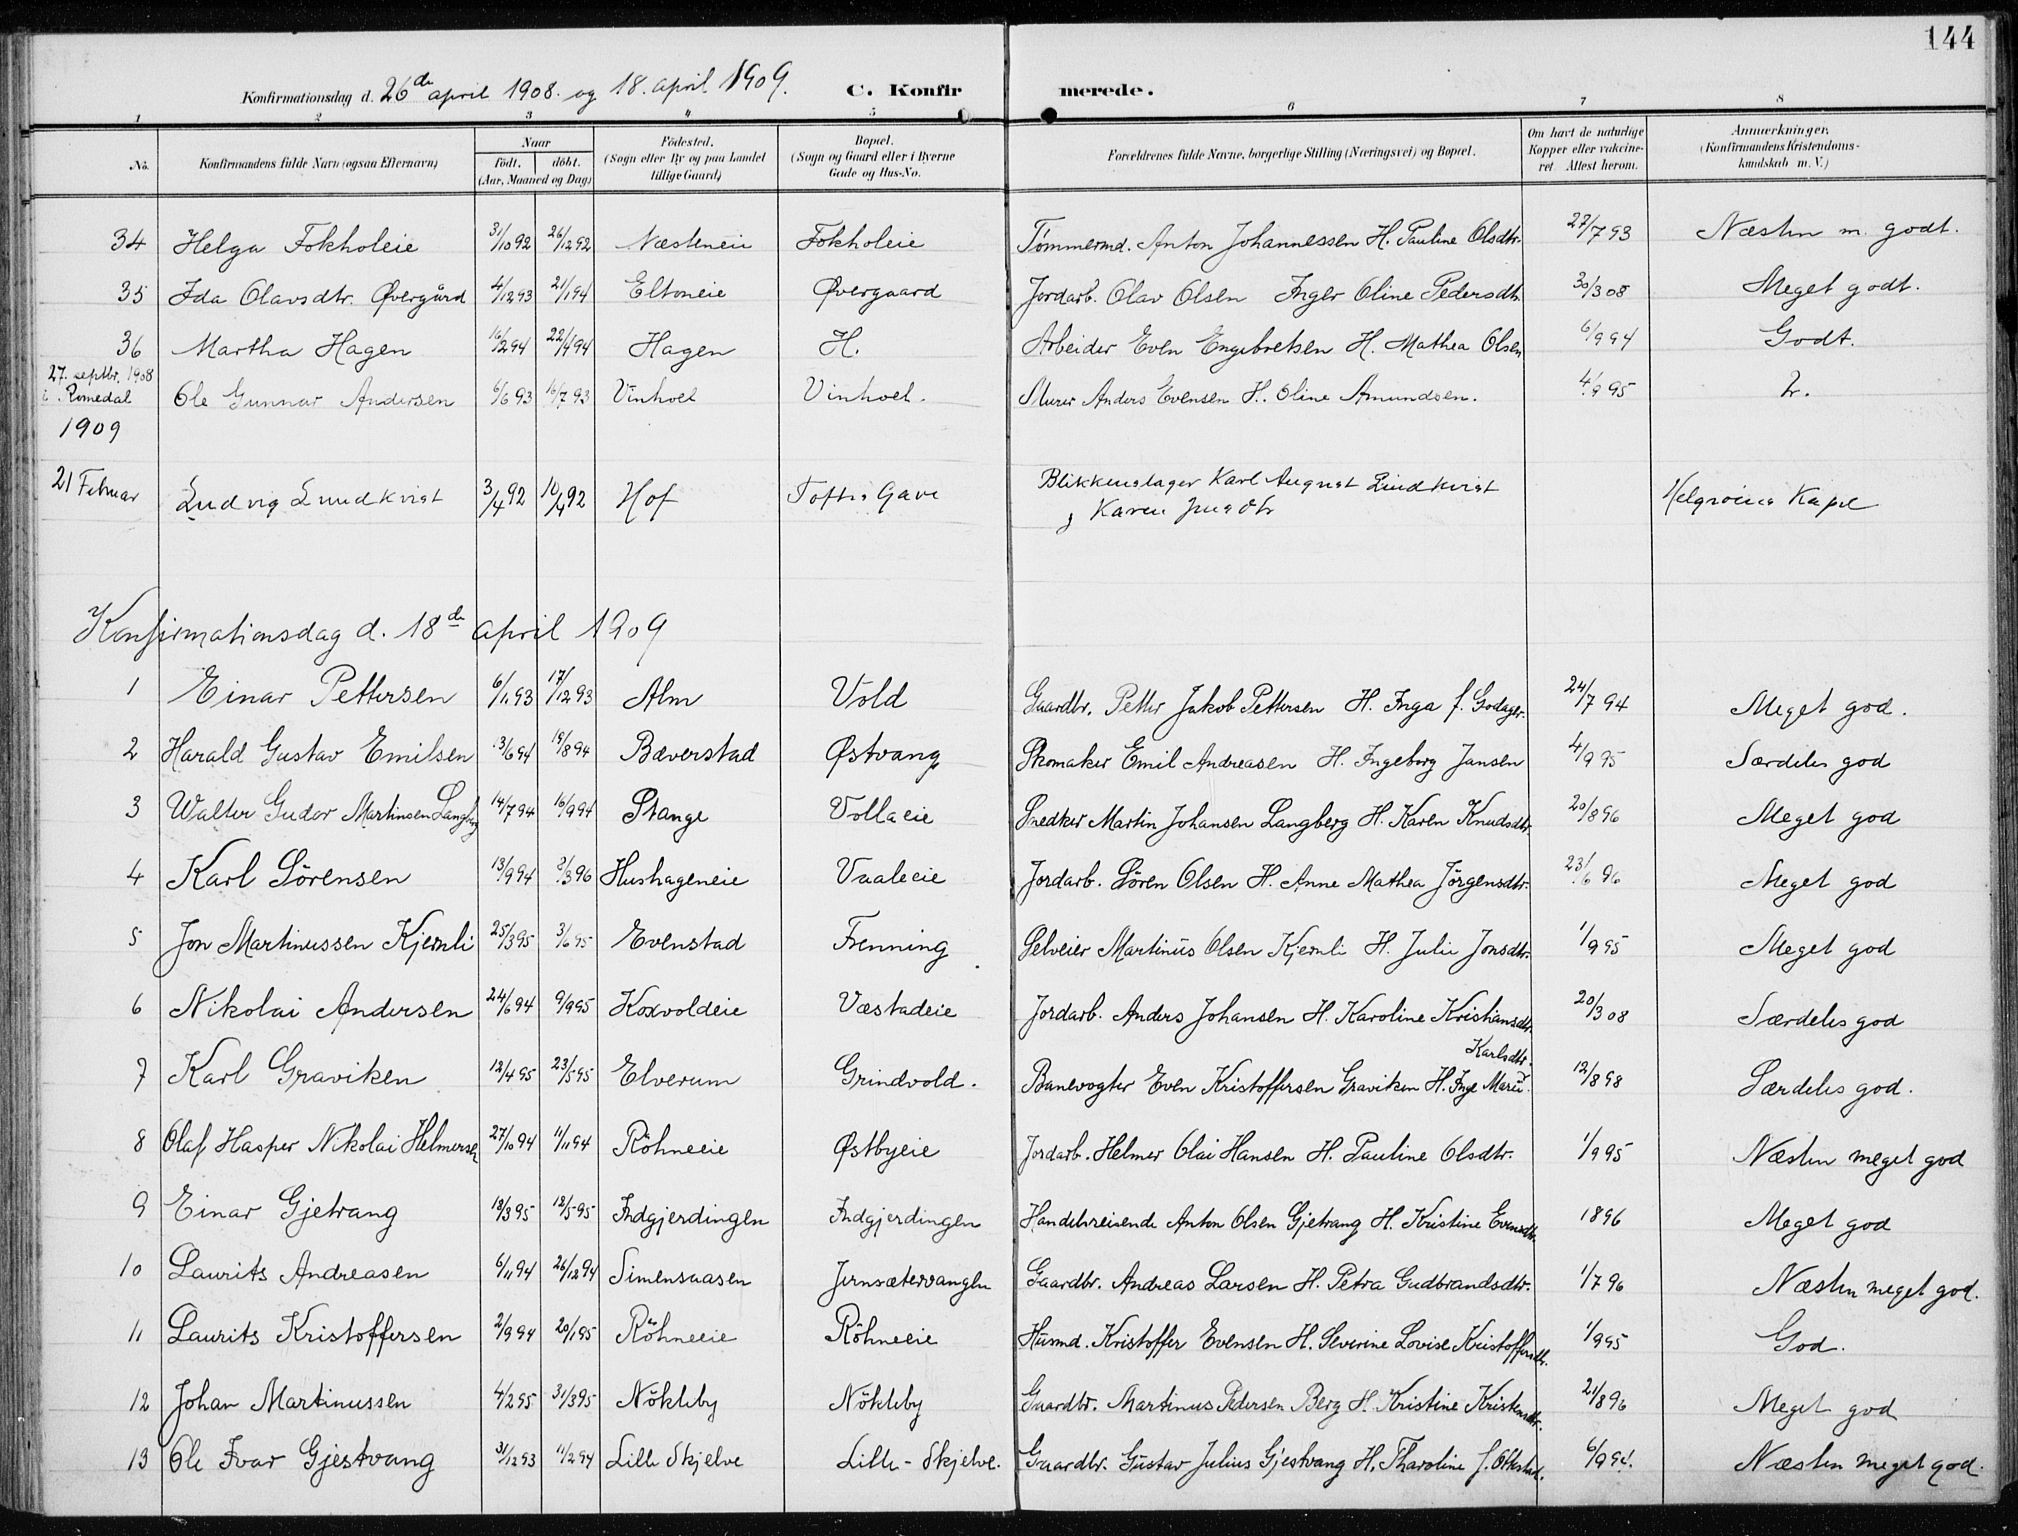 144
Konfirmationsdag d. 26de april 1908. og 18. april 1909. C. Konfir merede.
1 2 3 4 5 6 7 8
No. Konfirmandens fulde Navn (ogsaa Efternavn) Naar født. døbt. (Aar, Maaned og Dag) Fødested. (Sogn eller By og paa Landet tillige Gaard) Bopæl. (Sogn og Gaard eller i Byerne Gade og Hus-No. Forældrenes fulde Navne, borgerlige Stilling (Næringsvei) og Bopæl. Om havt de naturlige Kopper eller vakcineret. Attest herom. Anmærkninger. (Konfirmandens Kristendomskundskab m. V.)
34 Helga Fokholeie 3/10 92 26/12 92 Næsteneie Fokholeie Tømmermd. Anton Johannessen H. Pauline Olsdtr. 27/7 93 Næsten m. godt.
35 Ida Olavsdtr. Øvergård 4/12 93 21/1 94 Eltoneie Øvergaard Jordarb. Olav Olsen Inger Oline Pedersdtr. 30/3 08 Meget godt.
36 Martha Hagen 16/2 94 22/4 94 Hagen H. Arbeider Even Engebretsen H. Mathea Olsen 6/9 94 Godt.
27. septbr. 1908 i Romedal Ole Gunnar Andersen 6/6 93 16/7 93 Vinhoel Vinhoel. Murer Anders Evensen H. Oline Amundsen. 4/9 95
1909
21 Februar Ludvig Lundkvist 3/4 92 10/4 92 Hof Toftes Gave Blikkenslager Karl August Lindkvist
Karen
Konfirmationsdag d. 18de april 1909
1 Einar Pettersen 6/11 93 17/12 93 Alm Vold Gaardbr. Petter Jakob Pettersen H. Inga f. Godager. 24/7 94 Meget god.
2 Harald Gustav Emilsen 3/6 94 19/8 94 Bæverstad Østvang Skomaker Emil Andreasen H. Ingeborg Jansen 4/9 95 Særdeles god
3 Walter Gudor Martinsen Langberg 14/7 94 16/9 94 Stange Vollaeie Snedker Martin Johansen Langberg H. Karen Knudsdtr. 20/8 96 Meget god
4 Karl Sørensen 13/9 94 3/3 96 Hushageneie Vaaleeie Jordarb. Søren Olsen H. Anne Mathea Jørgensdtr. 23/6 96 Meget god
5 Jon Martinussen Kjernli 25/3 95 3/6 95 Evenstad Frenning Selveier Martinus Olsen Kjernli H. Julie Jonsdtr. 1/9 95 Meget god
6 Nikolai Andersen 24/6 94 9/9 95 Koxvoldeie Væstadeie Jordarb. Anders Johansen H. Karoline Kristiansdtr. 20/3 08 Særdeles god
Karlsdtr.
7 Karl Graviken 12/4 95 23/5 95 Elverum Grindvold. Banevogter Even Kristoffersen Graviken H. Inge Marie. 12/8 98 Særdeles god.
8 Olaf Hasper Nikolai Helmersen 27/10 94 11/11 94 Röhneeie Østbyeie Jordarb. Helmer Olai Hansen H. Pauline Olsdtr. 1/9 95 Næsten meget god
9 Einar Gjetvang 18/3 95 12/5 95 Indgjerdingen Indgjerdingen Handelsreisende Anton Olsen Gjetvang H. Kristine Evensdtr. 1896 Meget god
10 Laurits Andreasen 6/11 94 26/12 94 Simensaasen Jernsætervangen Gaardbr. Andreas Larsen H. Petra Gudbrandsdtr. 1/7 96 Næsten meget god.
11 Laurits Kristoffersen 2/9 94 20/1 95 Röhneeie Röhneeie Husmd. Kristoffer Evensen H. Severine Lovise Kristoffersdtr. 1/9 95 God.
12 Johan Martinussen 4/2 95 31/3 95 Nökleby Nökleby Gaardbr. Martinus Pedersen Berg H. Kristine Kristensdtr. 21/8 96 Meget god
13 Ole Ivar Gjestvang 31/12 93 11/2 94 Lille Skjelve Lille-Skjelve. Gaardbr. Gustav Julius Gjestvang H. Tharoline f. Olkstad. 6/9 94. Næsten meget god.